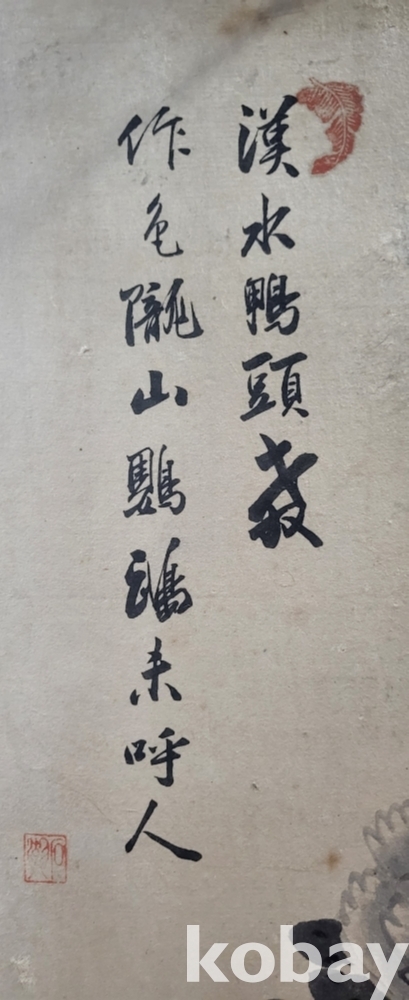 漢水鴨頭
作色隴山鸚鵡未呼人
kobay